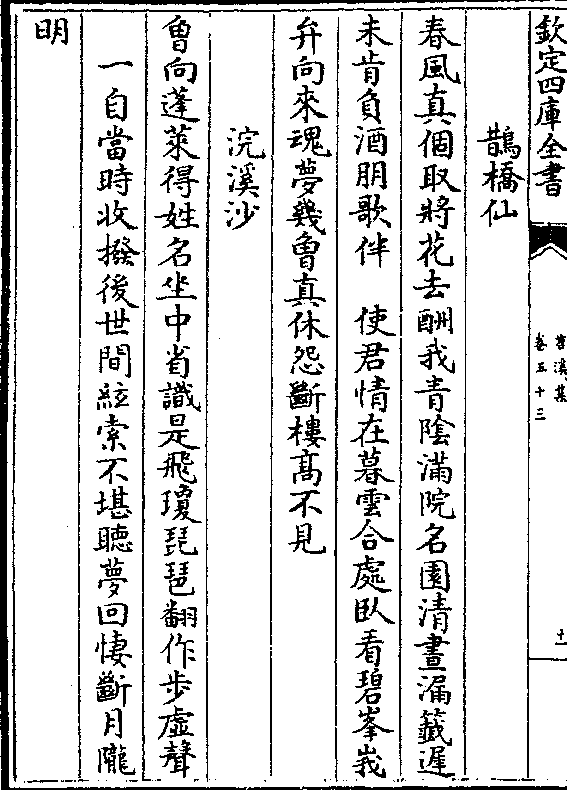 欽定四庫全書
苕溪集
卷五十三
十一
鵲橋仙
春風真個取將花去酬我青陰滿院名園清晝漏籤遲
未肯負酒朋歌伴　使君情在暮雲合處臥看碧峯峩
弁向來魂夢幾曾真休怨斷樓髙不見
浣溪沙
曾向蓬萊得姓名坐中省識是飛瓊琵琶翻作步虚聲
一自當時收撥後世間絃索不堪聽夢回悽斷月隴
明